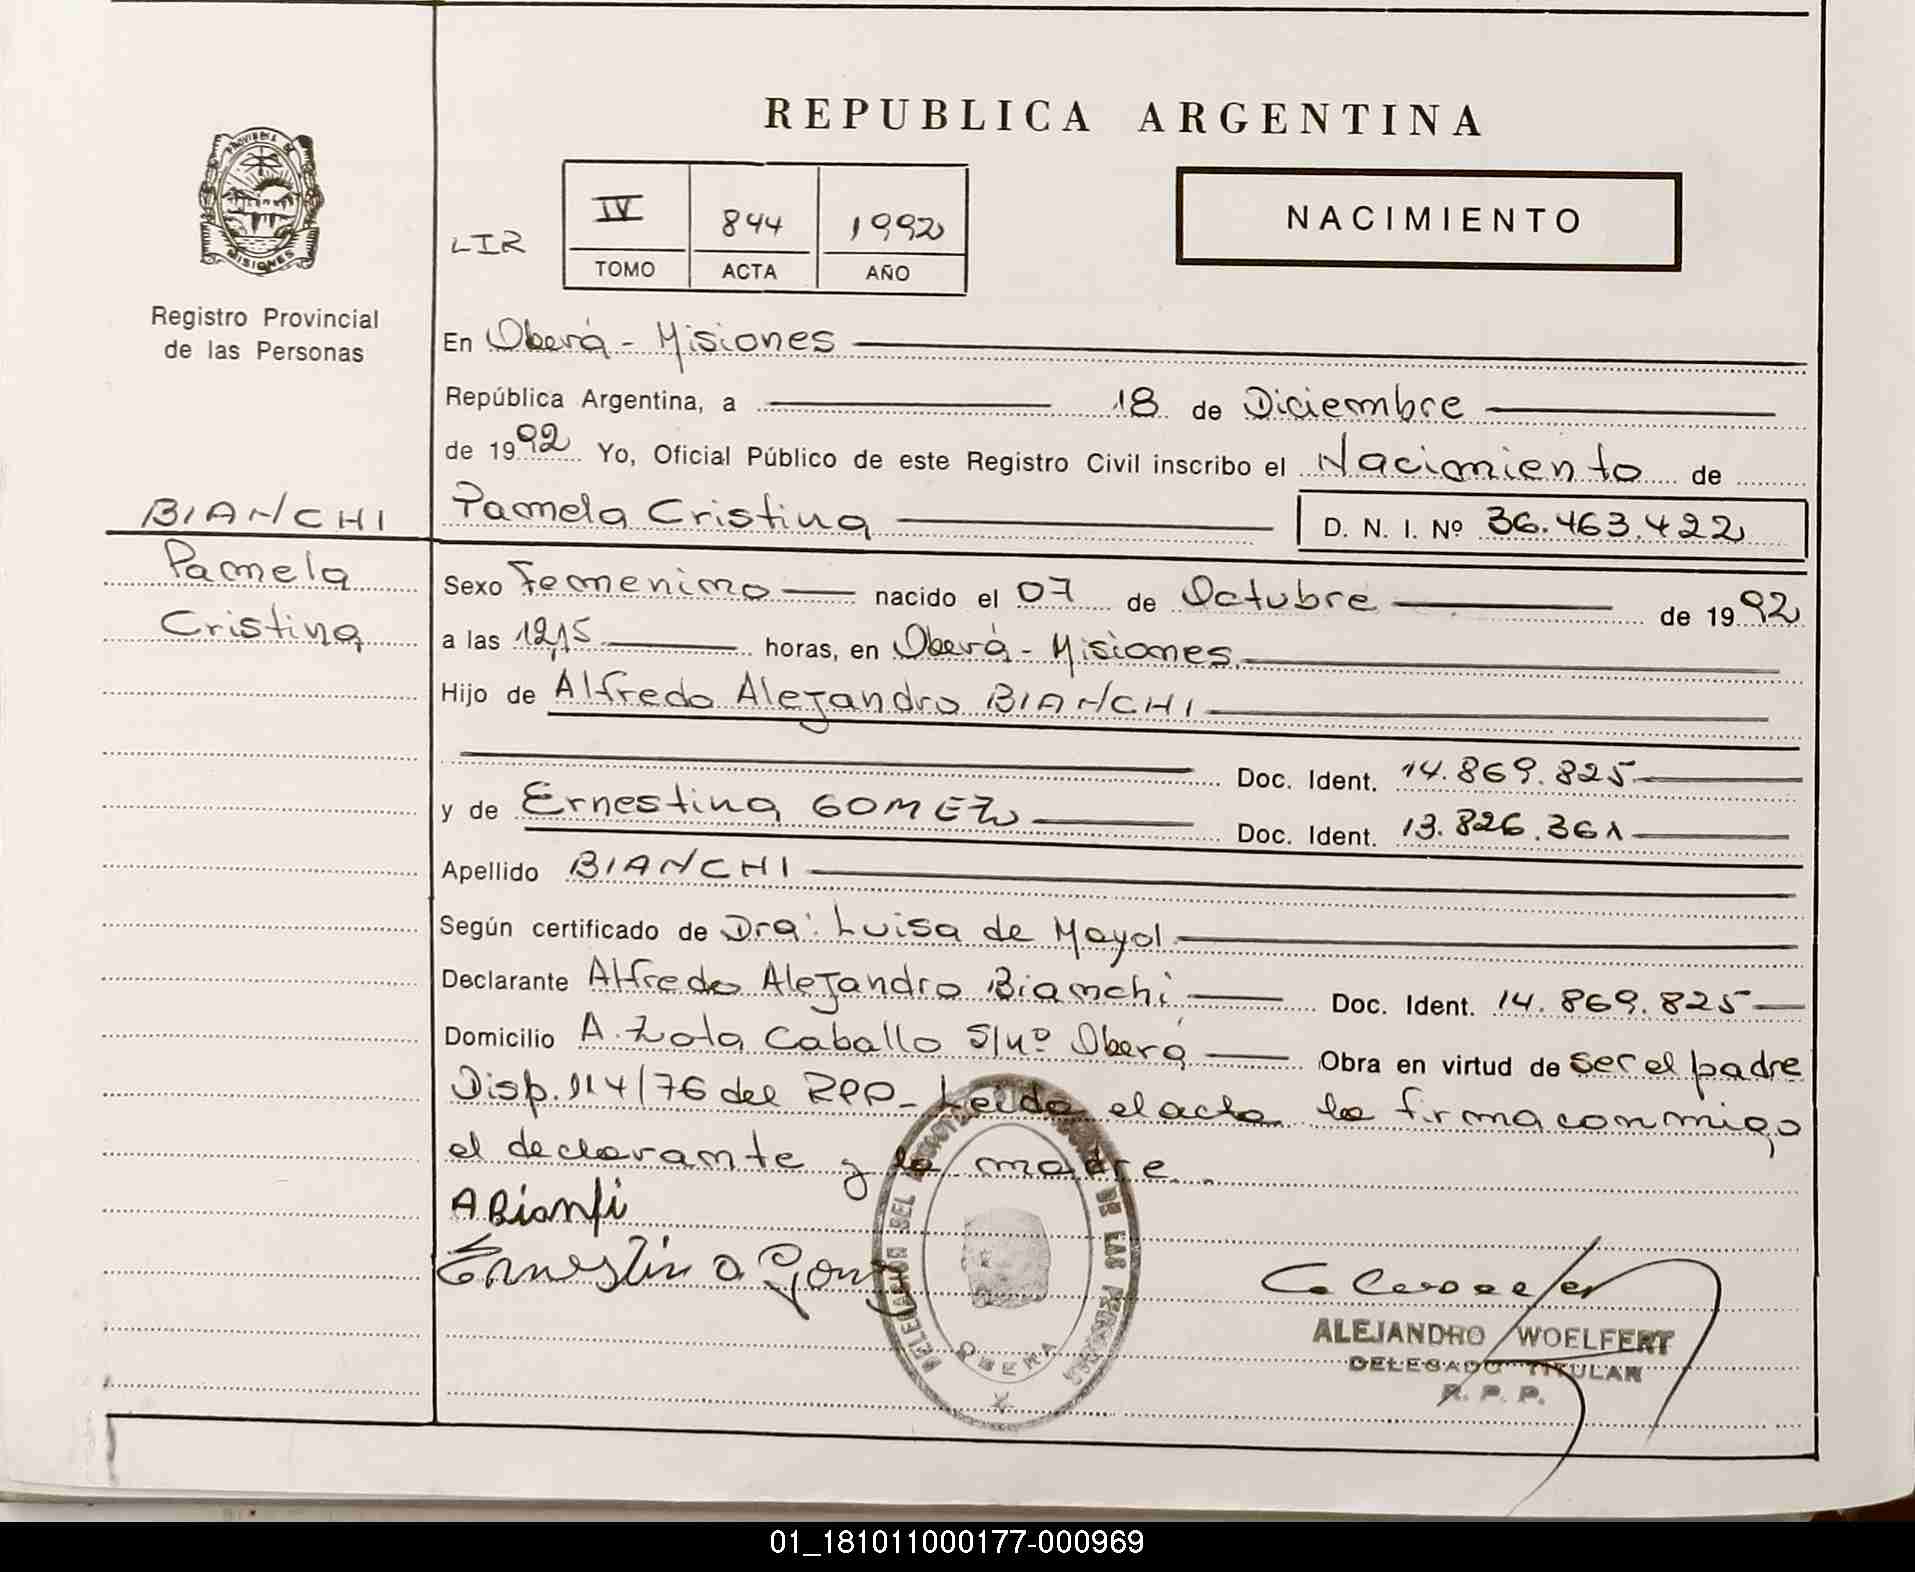 REPUBLICA ARGENTINA
PROVINCIA DE
MISIONES
Registro Provincial
de las Personas
IV 844 1992
TOMO ACTA AÑO
NACIMIENTO
En Oberá - Misiones
República Argentina, a 18 de Diciembre
de 1992 Yo, Oficial Público de este Registro Civil inscribo el Nacimiento de
BIANCHI
Pamela
Cristina
Pamela Cristina D. N. I. Nº 36.463.422
Sexo Femenino nacido el 07 de Octubre de 1992
a las 12,15 horas, en Oberá - Misiones
Hijo de Alfredo Alejandro BIANCHI
Doc. Ident. 14.869.825
y de Ernestina GOMEZ Doc. Ident. 13.826.361
Apellido BIANCHI
Según certificado de Dra: Luisa de Mayol
Declarante Alfredo Alejandro Bianchi Doc. Ident. 14.869.825
Domicilio A. Zota Caballo S/nº Oberá Obra en virtud de ser el padre
Disp. 114/76 del RPP - Leida el acta la firma conmigo
el declarante y la madre.
Ernestina
DELEGACION DEL REGISTRO DE LAS PERSONAS
OBERA
ALEJANDRO WOELFERT
DELEGADO TITULAR
R. P. P.
01_181011000177-000969